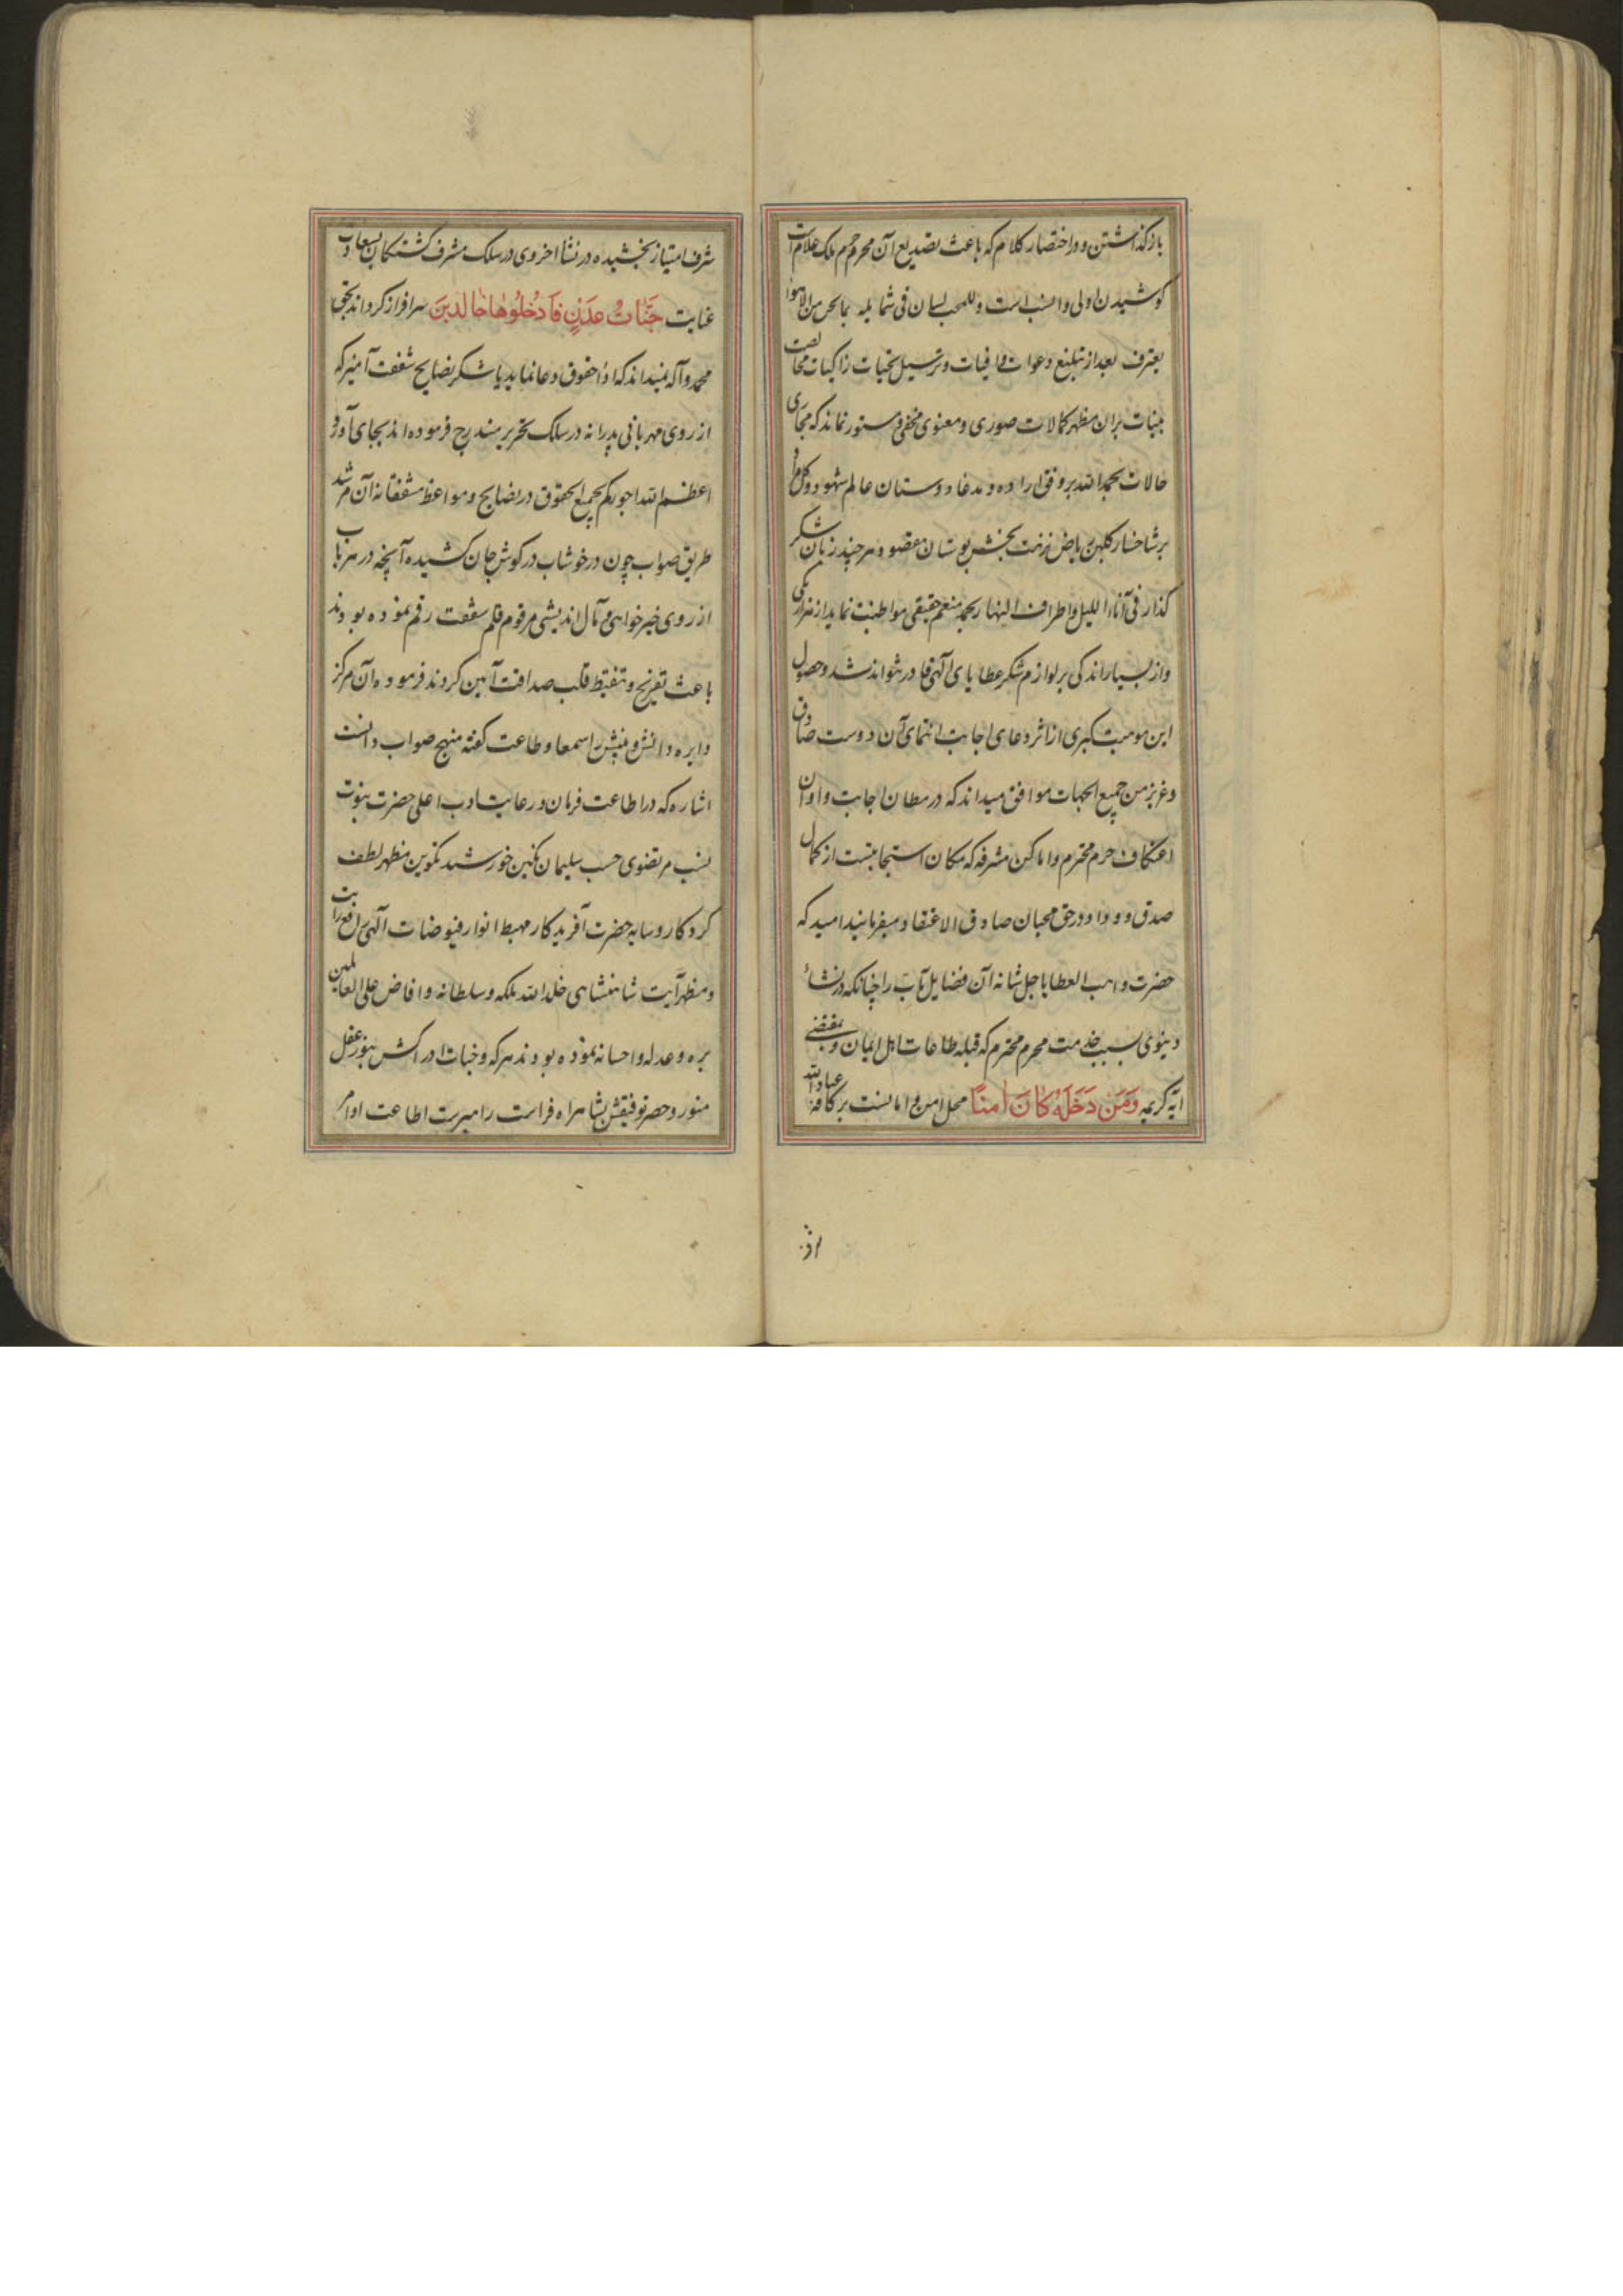 بازگذاشتن و در اختصار کلام که باعث تصدیع آن محرم حرم ملک علام است
کوشیدن اولی و انسب است و للمحب لسان فی شمایله بما یجن من الاهوا
یعترف بعد از تبلیغ دعوات وافیات و ترسیل تحیات زاکیات مخالصت
بینات بران مظهر کمالات صوری و معنوی مخفی و مستور نماند که مجاری
حالات بحمد الله بر وفق اراده و مدعا دوستان عالم شهود و کل مراد
بر شاخسار گلبن ریاض نزهت بخش بوستان مقصود هر چند زبان شکر
گذار فی آناء اللیل و اطراف النهار بحمد منعم حقیقی مواظبت نماید از هزار یکی
و از بسیار اندکی بر لوازم شکر عطایای الهی قادر نتواند شد و حصول
این موهبت کبری از اثر دعای اجابت انتمای آن دوست صادق
و عزیز من جمیع الجهات موافق میداند که در مظان اجابت و اوان
اعتکاف حرم محترم و اماکن مشرفه که مکان استجابتست از کمال
صدق و وداد در حق محبان صادق الاعتقاد میفرمایند امید که
حضرت واهب العطایا جل شانه آن فضایل مآب را چنانکه در نشاء
دینوی بسبب خدمت محرم محترم که قبله طاعات اهل ایمان و بمقتضی
آیه کریمه وَمَن دَخَلَهُ کَانَ اٰمِنًا محل امن و امانست بر کافه عباد الله
شرف امتیاز بخشیده در نشاء اخروی در سلک مشرف گشتگان بسعادت
عنایت جَنَّاتُ عَدْنٍ فَادْخُلُوهَا خَالِدِینَ سرافراز گرداند بحق
محمد و آله نمیداند که اداء حقوق دعا نماید یا شکر نصایح شفقت آمیز که
از روی مهربانی پدرانه در سلک تحریر مندرج فرموده اند بجای آورد
اعظم الله اجورکم بجمیع الحقوق در نصایح و مواعظ مشفقانه آن مرشد
طریق صواب چون در خوشاب در گوش جان کشیده آنچه در هر باب
از روی خیرخواهی و مآل اندیشی مرقوم قلم شفقت رقم نموده بودند
باعث تفریح و تنقیط قلب صداقت آیین گردید فرموده آن مرکز
دایره دانش و بینش را سمعا و طاعت گفته منهج صواب دانست
اشاره که در اطاعت فرمان و رعایت ادب اعلی حضرت نبوت
نسب مرتضوی حسب سلیمان نگین خورشید تکوین مظهر لطف
کردگار و سایه حضرت آفریدگار مهبط انوار فیوضات الهی رافع رایت
و مظهر آیت شاهنشاهی خلد الله ملکه و سلطانه و افاض علی العالمین
بره و عدله و احسانه نموده بودند هر که وجنات ادراکش بنور عقل
منور و خضر توفیقش بشاهراه فراست راهبرست اطاعت اوامر